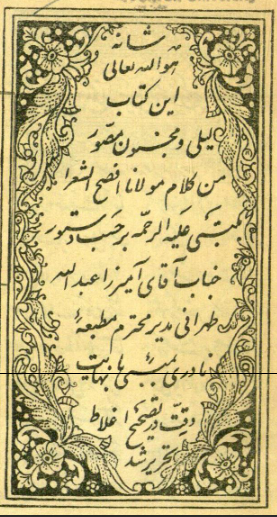 شانه
هو الله تعالی
این کتاب
لیلی و مجنون مصوّر
من کلام مولانا افصح الشعرا
مکتبی علیه الرحمه بر حسب دستور
جناب آقای آمیرزا عبدالله
طهرانی مدیر محترم مطبعهٔ
نادری بمبئی با نهایت
دقّت در تصحیح اغلاط
تحریر شد